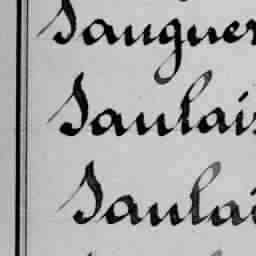 Sauguer
Saulais
Saulai